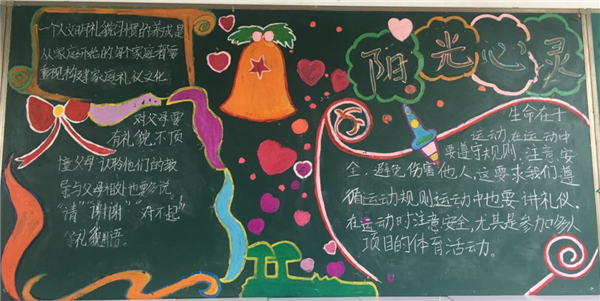 一个人文明礼貌习惯的养成是
从家庭开始的每个家庭都要
重视构建家庭礼仪文化
对父母要
有礼貌,不顶
撞父母,认聆他们的教
导与父母相处也要多说
“请”“谢谢”“对不起”
等礼貌用语。
阳光心灵
生命在于
运动,在运动中
要遵守规则,注意安
全,避免伤害他人,这要求我们遵
循运动规则运动中也要讲礼仪,
在运动时注意安全,尤其是参加多人
项目的体育活动。